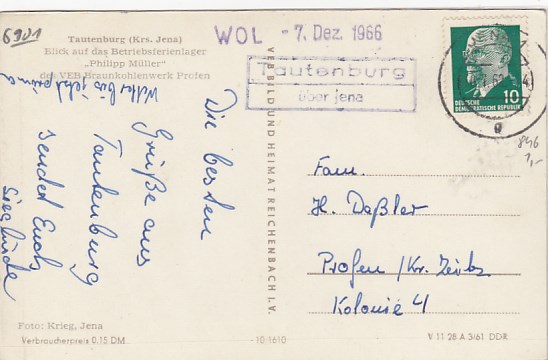 6901
Tautenburg (Krs. Jena)
Blick auf das Betriebsferienlager
„Philipp Müller"
des VEB Braunkohlenwerk Profen
Wetter bis jetzt prima
Die besten
Grüße aus
Tautenburg
sendet Euch
Sieglinde
Foto: Krieg, Jena
Verbraucherpreis 0,15 DM
VEB BILD UND HEIMAT REICHENBACH I. V.
10 1610
WOL - 7. Dez. 1966
Tautenburg
über Jena
JENA
g
DEUTSCHE
DEMOKRATISCHE REPUBLIK
10
846
1,-
Fam.
H. Daßler
Profen /Kr. Zeitz
Kolonie 4
V 11 28 A 3/61 DDR